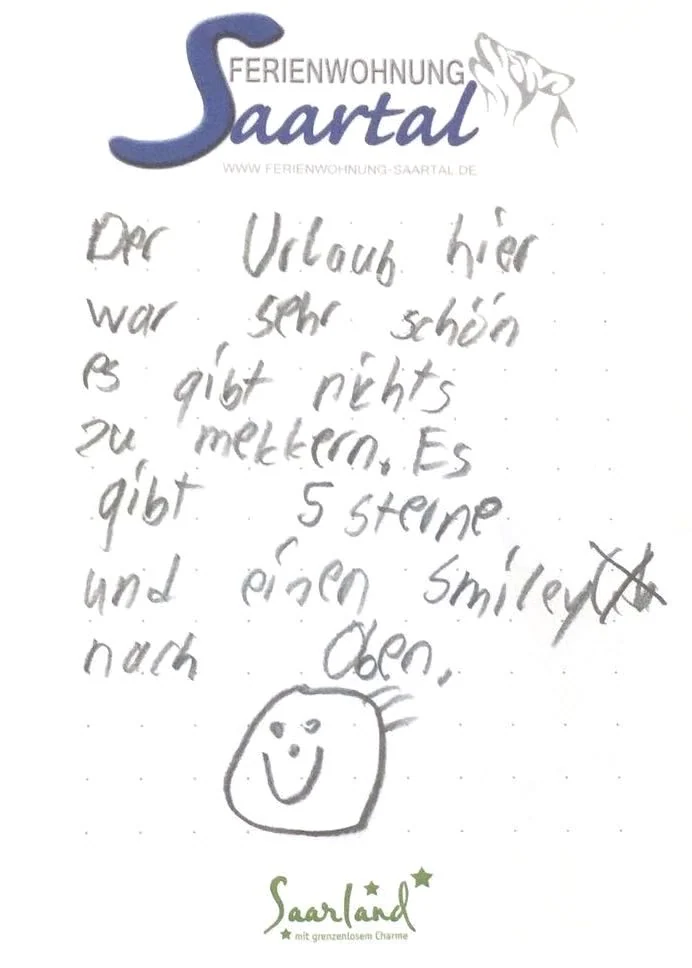 FERIENWOHNUNG
Saartal
WWW FERIENWOHNUNG-SAARTAL.DE
Der Urlaub hier
war sehr schön
es gibt nichts
zu mekkern. Es
gibt 5 sterne
und einen Smiley
nach Oben.
Saarland
mit grenzenlosem Charme